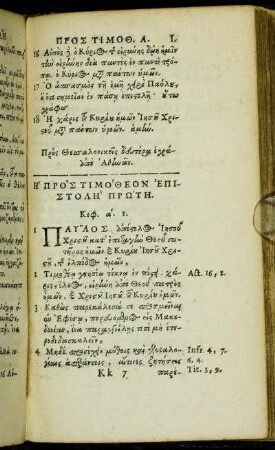 ΠΡΟΣ ΤΙΜΟΘ. Α. 1.
16 Αὐτὸς ὁ Κύριος τῆς εἰρήνης δῴη ὑμῖν
τὴν εἰρήνην διὰ παντὸς ἐν παντὶ τρό-
πῳ. ὁ Κύριος μετὰ πάντων ὑμῶν.
17 Ὁ ἀσπασμὸς τῇ ἐμῇ χειρὶ Παύλου,
ὅ ἐστι σημεῖον ἐν πάσῃ ἐπιστολῇ· οὕτω
γράφω·
18 Ἡ χάρις τοῦ Κυρίου ἡμῶν Ἰησοῦ Χρι-
στοῦ μετὰ πάντων ὑμῶν. ἀμήν.
Πρὸς Θεσσαλονικεῖς δευτέρα ἐγρά-
φη ἀπὸ Ἀθηνῶν.
Ἡ ΠΡΟΣ ΤΙΜΟΘΕΟΝ ἘΠΙ-
ΣΤΟΛΗ ΠΡΩΤΗ.
Κεφ. α. 1.
1 ΠΑΥΛΟΣ ἀπόστολος Ἰησοῦ
Χριστοῦ κατ' ἐπιταγὴν Θεοῦ σω-
τῆρος ἡμῶν, καὶ Κυρίου Ἰησοῦ Χρι-
στοῦ τῆς ἐλπίδος ἡμῶν,
2 Τιμοθέῳ γνησίῳ τέκνῳ ἐν πίστει, χά-
ρις, ἔλεος, εἰρήνη ἀπὸ Θεοῦ πατρὸς
ἡμῶν, καὶ Χριστοῦ Ἰησοῦ τοῦ Κυρίου ἡμῶν.
Act. 16, 1.
3 Καθὼς παρεκάλεσά σε προσμεῖναι
ἐν Ἐφέσῳ, πορευόμενος εἰς Μακε-
δονίαν, ἵνα παραγγείλῃς τισὶ μὴ ἑτε-
ροδιδασκαλεῖν,
4 Μηδὲ προσέχειν μύθοις καὶ γενεαλο-
γίαις ἀπεράντοις, αἵτινες ζητήσεις
Infr. 4, 7.
6, 4.
Tit. 3, 9.
Kk 7 παρέ-